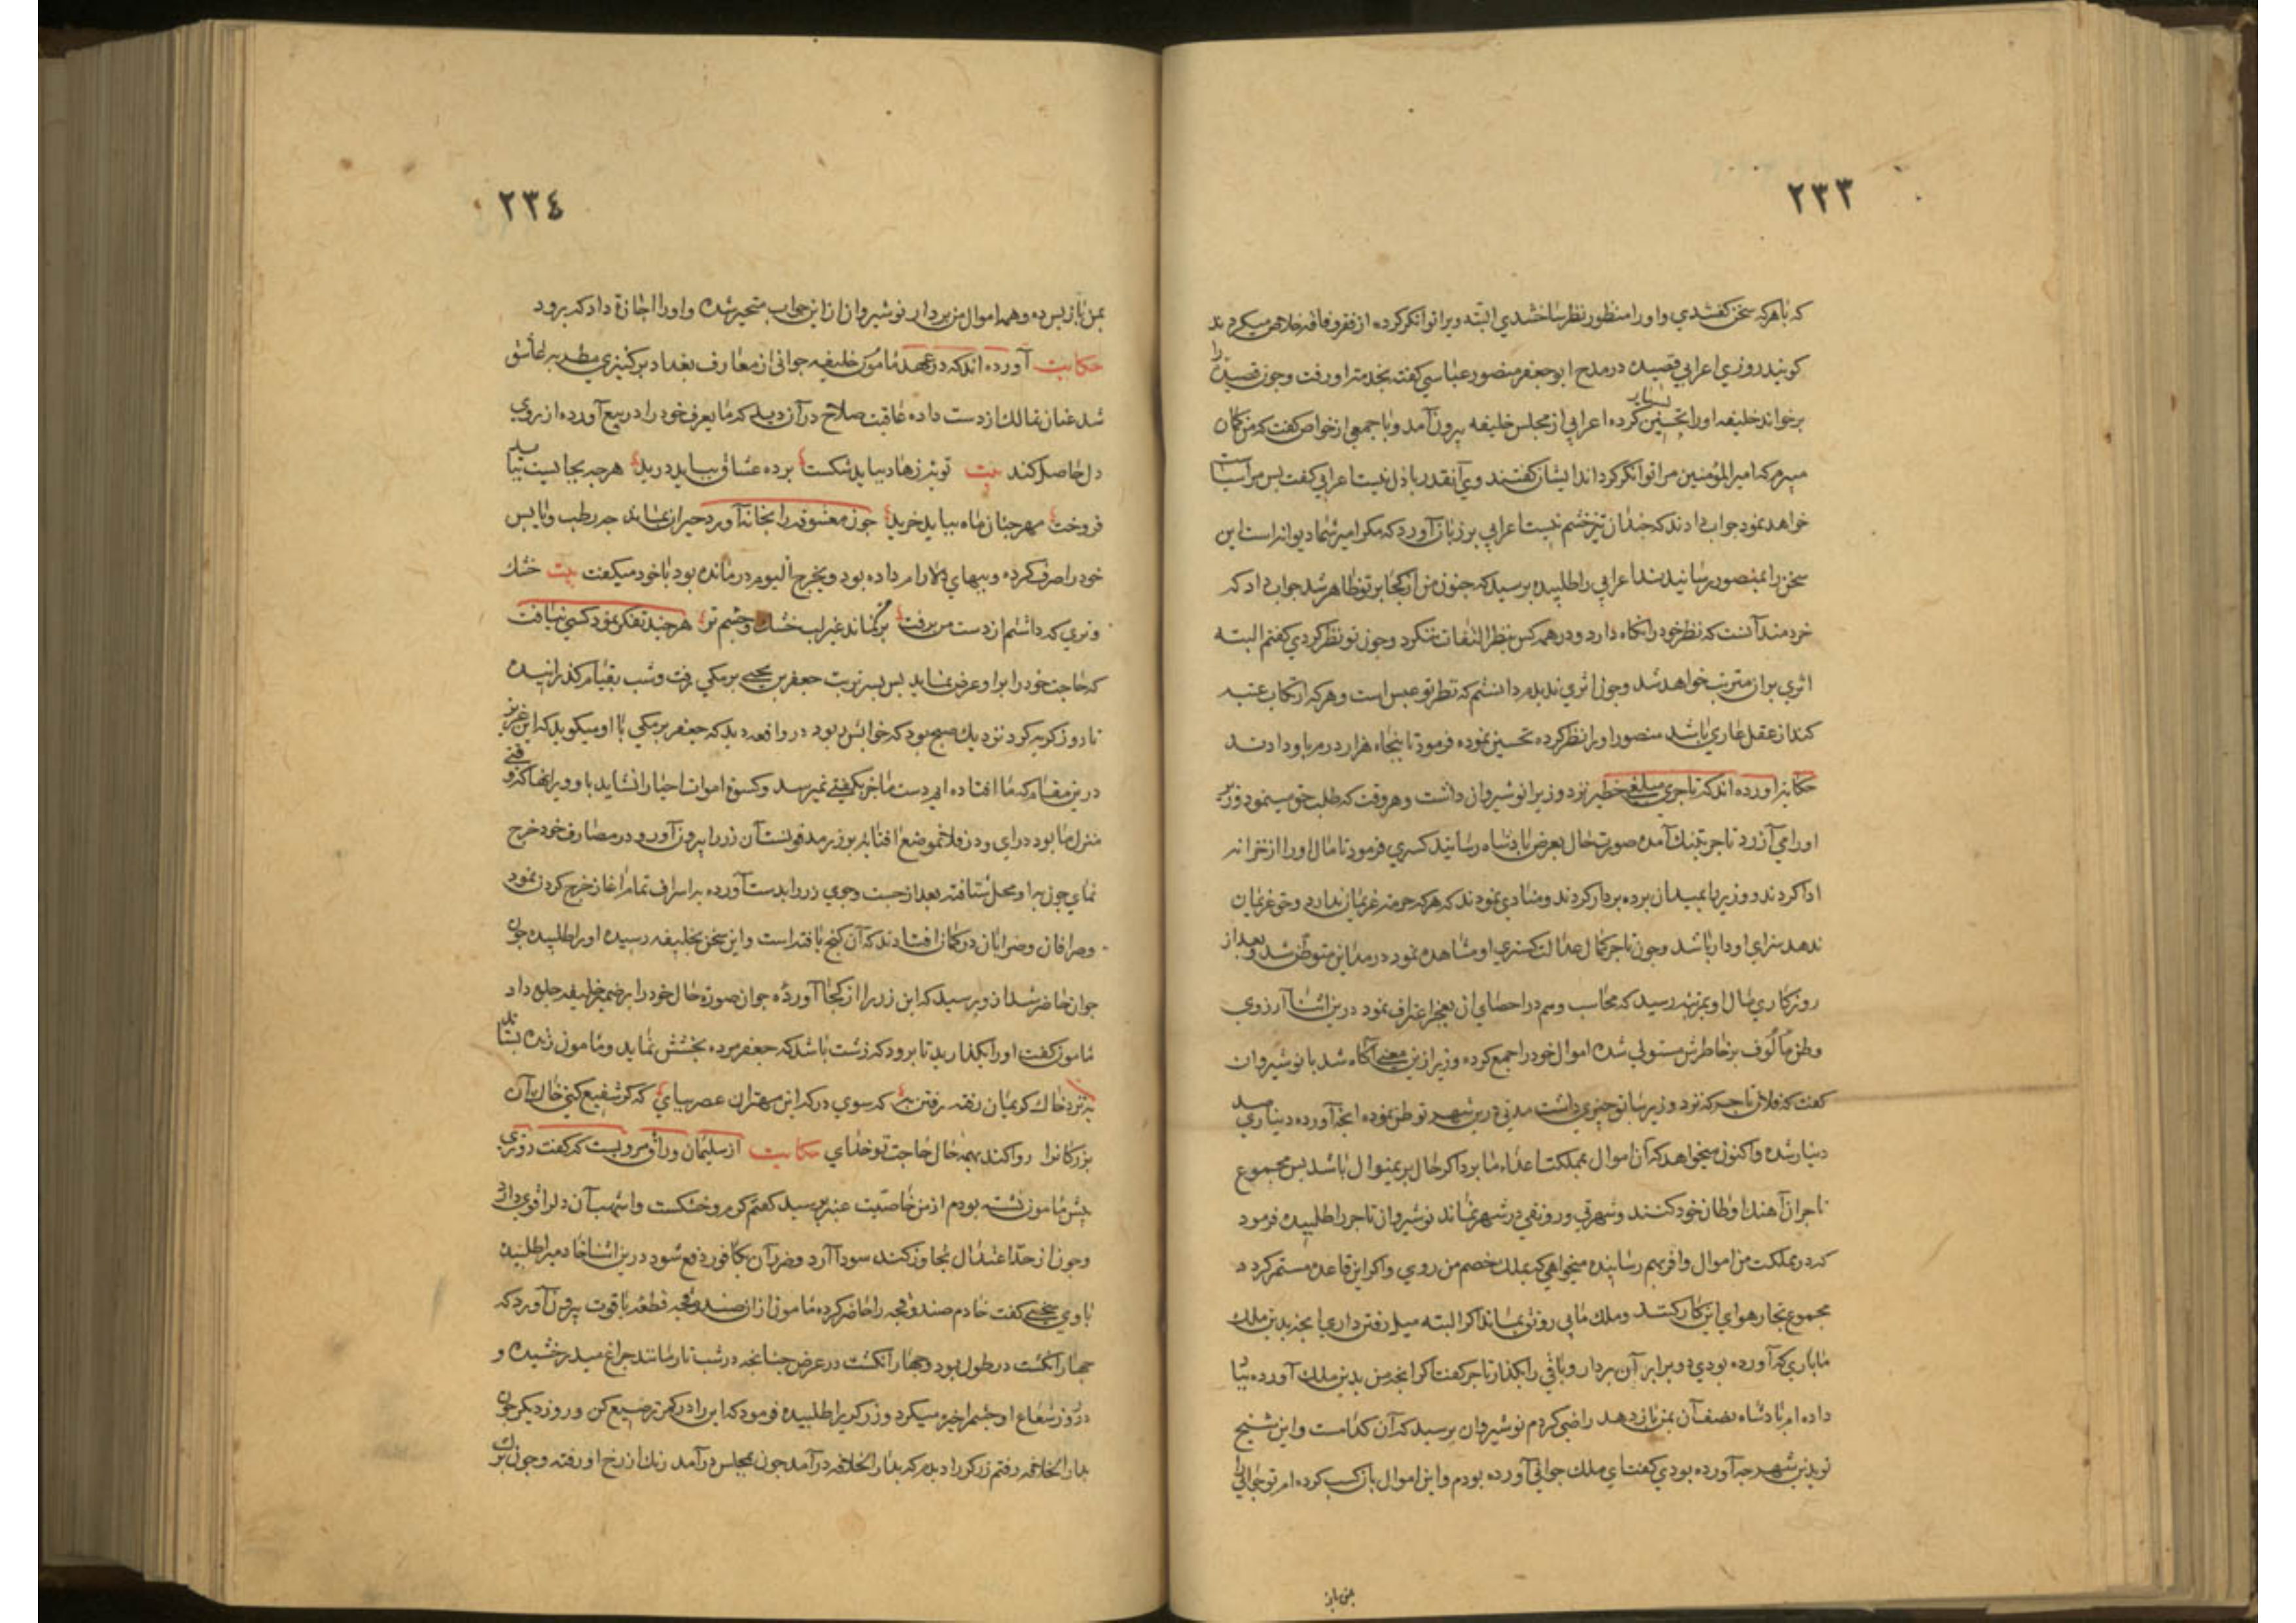 ٢٣٣
که باهرکه سخن کفتندی واورا منظور نظر ساختندی البته ویرا توانکر کرده از فقر وفاقه خلاص میکردند
کویند روزی اعرابی قصیده در مدح ابوجعفر منصور عباسی کفت بخدمت او رفت وجون قصیده را
برخواند خلیفه اورا تحسین بسیار کرده اعرابی از مجلس خلیفه بیرون آمد وبا جمعی از خواص کفت که من کمان
میبرم که امیر المؤمنین مرا توانکر کرداند ایشان کفتند وی آنقدر باذل نیست اعرابی کفت بس مرا سیاست
خواهد نمود جواب دادند که جندان تیز خشم نیست اعرابی بر زبان آورد که مکر امیر شما دیوانه است این
سخن را بمنصور رسانیدند اعرابی را طلبیده برسید که جنون من از کجا بر تو ظاهر شد جواب داد که
خردمند آنست که نظر خود را نکاه دارد ودر همه کس بنظر التفات ننکرد وجون تو نظر کردی کفتم البته
اثری بر آن مترتب خواهد شد وجون اثری ندیدم دانستم که نظر تو عبس است وهرکه ارتکاب عبث
کند از عقل عاری باشد منصور اورا نظر کرده تحسین نموده فرمود تا بنجاه هزار درم باو دادند
حکایت آورده اند که تاجری مبلغی خطیر نزد وزیر انوشیروان داشت وهر وقت که طلب حق مینمود وزیر
اورا می آزرد تاجر بتنك آمده صورت حال بعرض بادشاه رسانید کسری فرمود تا مال اورا از خزانه
ادا کردند ووزیر را بمیدان برده بردار کردند ومنادی نمودند که هرکه حرمت غریبان ندارد وحق غریبان
ندهد سزای او دار باشد وجون تاجر کمال عدالت کستری او مشاهده نمود در مداین متوطن شد وبعد از
روزکاری مال او بمرتبه رسید که محاسب وهم در احصای آن بعجز اعتراف نمود درین اثنا آرزوی
وطن مألوف برخاطرش مستولی شده اموال خودرا جمع کرده وزیر ازین معنی آکاه شد با نوشیروان
کفت که فلان تاجر که نزد وزیر سابق جیزی داشت مدتی درین شهر توطن نموده انجه آورده دیناری صد
دینار شده واکنون میخواهد که آن اموال بمملکت اعداء ما برد اکر حال برینموال باشد بس مجموع
تاجران آهنك اوطان خود کنند وشهر بی ورونقی در شهر نماند نوشیروان تاجر را طلبیده فرمود
که در مملکت من اموال وافر بهم رسانیده میخواهی که بملك خصم من روی واکر این قاعده مستمر کردد
مجموع تجار هوای این کار کنند وملك ما بی رونق بماند اکر البته میل رفتن داری انجه بدین ملك
ما باری که آورده بودی دو برابر آن بردار وباقی را بکذار تاجر کفت اکر انجه من بدین ملك آورده بباد
داده ام بادشاه نصف آن بمن بازدهد راضی کردم نوشیروان برسید که آن کدامست واین شیخ
تو بدین شهر جه آورده بودی کفت ای ملك جوانی آورده بودم واین اموال باز کسب کرده ام تو جوانی را
بمن باز
٢٣٤
بمن باز بس ده وهمه اموال من بردار نوشیروان از این جواب متحیر شده واورا اجازة داد که برود
حکایت آورده اند که در عهد مامون خلیفه جوانی از معارف بغداد بر کنیزی مطربه عاشق
شد عنان تمالك از دست داده عاقبت صلاح در آن دید که مایعرف خودرا در بیع آورده از بروی
دل حاصل کند بیت توبه زهاد بباید شکست برده عشاق بباید درید هرجه بجا نیست بباید
فروخت مهر جنان ماه بباید خرید جون معشوقه را بخانه آورد حیران بماند جه رطب ویابس
خودرا صرف کرده وببهای دلارام داده بود وبخرج الیوم درمانده بود با خود میکفت بیت خشك
وتری که داشتم از دست من برفت برکم نماند غیر لب خشك وجشم تر هرجند تفکر نمود کسی نیافت
که حاجت خودرا براو عرض نماید بس بسر تربت جعفر بن یحیی برمکی رفت وشب بقیام کذرانیده
تا روز کریه کرد نزدیك صبح بود که خوابش ربود در واقعه دید که جعفر برمکی با او میکوید که این عزیز
درین مقام که ما افتاده ایم دست ما بهیچ کیفیتی نمیرسد وکسوة اموات احیا را نشاید باو ویرانها کذر وقتی
منزل ما بود درای ودر فلان موضع افتابه بر زر مدفونست آن زر را بیرون آور ودر مصارف خود خرج
نمای جوان براو محل شتافته بعد از جست وجوی زر را بدست آورده براسراف تمام اغاز خرج کردن نمود
وصرافان وضرابان در کمان افتادند که آن کنج یافته است واین سخن بخلیفه رسیده اورا طلبیده جون
جوان حاضر شد از وبرسید که این زر را از کجا آوردۀ جوان صورة حال خودرا بر ضمیر خلیفه جلوه داد
مامون کفت اورا بکذارید تا برود که زشت باشد که جعفر مرده بخشش نماید ومامون زنده بستاند
به نزد خاك کریمان رفته رفتن به که سوی درکه این مهتران عصر بیای که کر شفیع کنی خاك آن
بزرکانرا روا کند بهمه حال حاجت تو خدای حکایت از سلیمان وراق مرویست که کفت روزی
بیش مامون نشسته بودم از من خاصیت عنبر برسید کفتم کرم وخشکست واشهب آن دل را قوی دارد
وجون از حد اعتدال تجاوز کند سودا آرد وضرر آن بکافور دفع شود درین اثنا خادمیرا طلبیده
با وی سخنی کفت خادم صندوقجه را حاضر کرده مامون از آن صندوقجه قطعه یاقوت بیرون آورد که
جهار انکشت در طول بود وجهار انکشت در عرض جنانجه در شب تار مانند جراغ میدرخشید و
در روز شعاع او جشم را خیره میکرد وزرکریرا طلبیده فرمود که این را در کمر ترصیع کن وروز دیکر جون
بدار الخلافه رفتم زرکر را دیدم که بدار الخلافه درآمد جون بمجلس درآمد رنك از رخ او رفته وجون برك